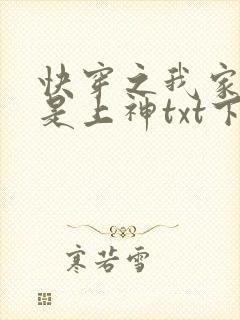 快穿之我家
是上神txt下
寒若雪